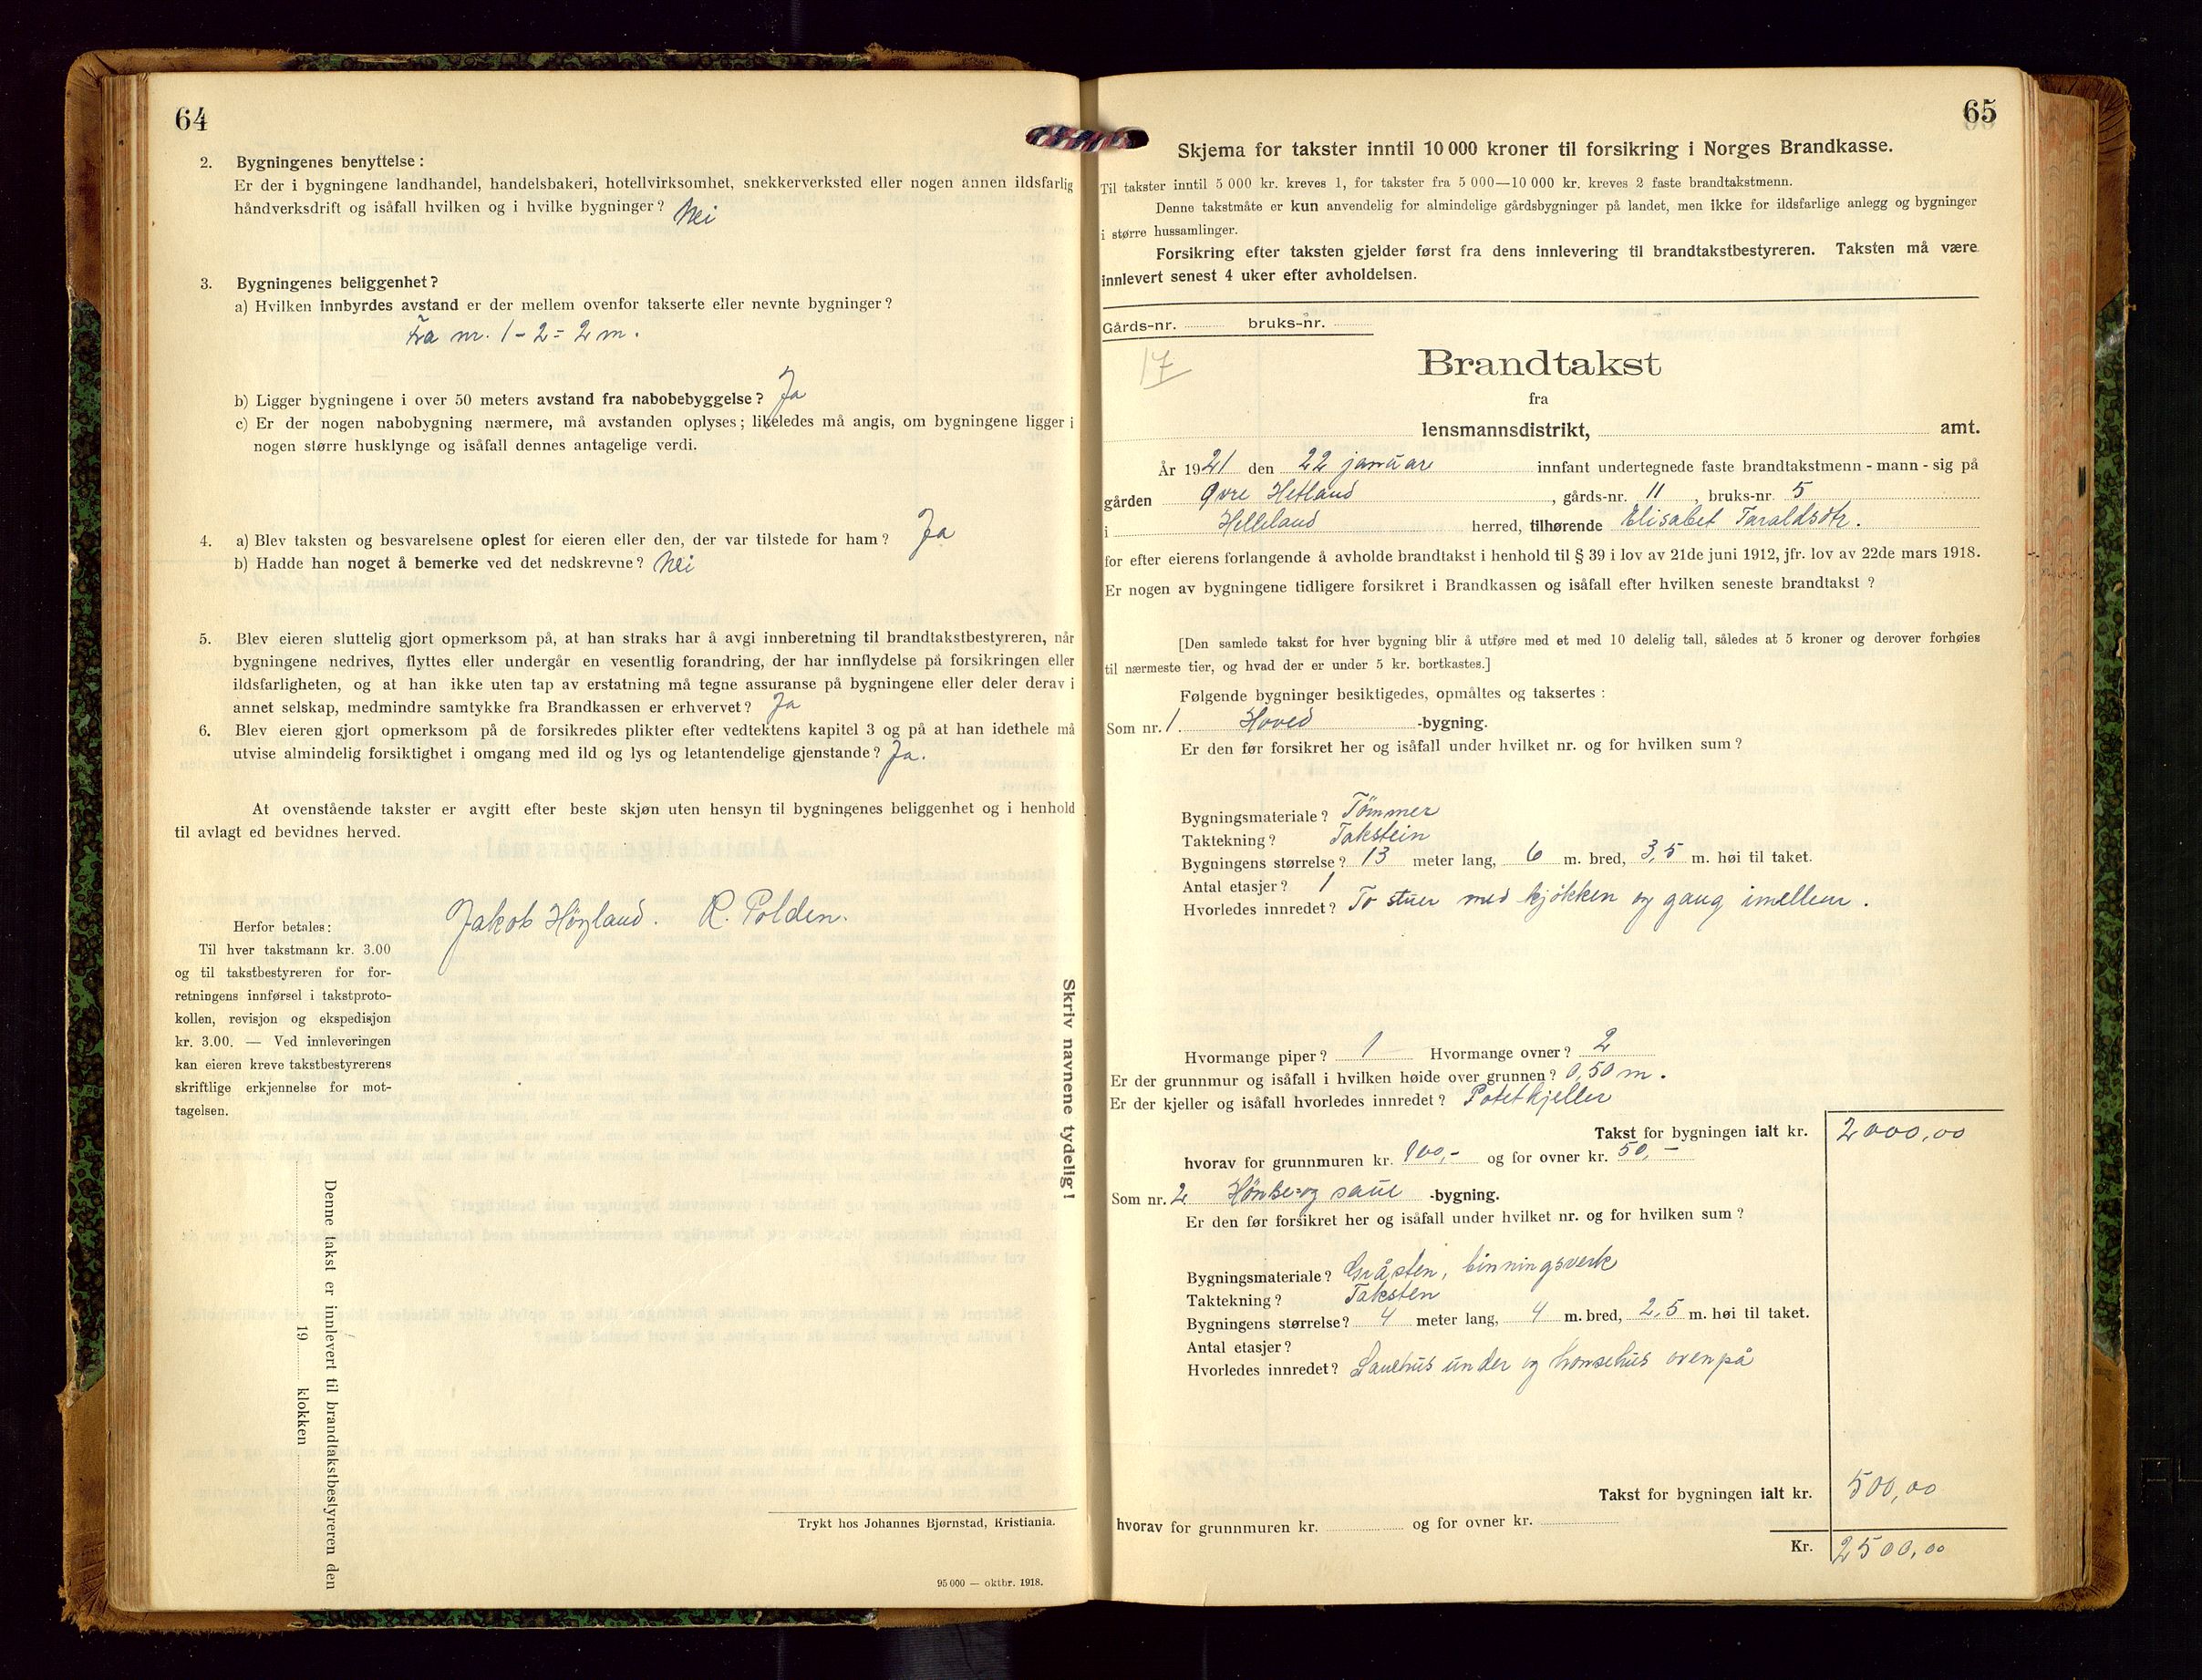 64
2. Bygningenes benyttelse:
Er der i bygningene landhandel, handelsbakeri, hotellvirksomhet, snekkerverksted eller nogen annen ildsfarlig
håndverksdrift og isåfall hvilken og i hvilke bygninger? Nei
3. Bygningenes beliggenhet?
a) Hvilken innbyrdes avstand er der mellem ovenfor takserte eller nevnte bygninger?
Fra nr. 1 - 2 = 2 m.
b) Ligger bygningene i over 50 meters avstand fra nabobebyggelse? Ja
c) Er der nogen nabobygning nærmere, må avstanden oplyses; likeledes må angis, om bygningene ligger i
nogen større husklynge og isåfall dennes antagelige verdi.
4. a) Blev taksten og besvarelsene oplest for eieren eller den, der var tilstede for ham? Ja
b) Hadde han noget å bemerke ved det nedskrevne? Nei
5. Blev eieren sluttelig gjort opmerksom på, at han straks har å avgi innberetning til brandtakstbestyreren, når
bygningene nedrives, flyttes eller undergår en vesentlig forandring, der har innflydelse på forsikringen eller
ildsfarligheten, og at han ikke uten tap av erstatning må tegne assuranse på bygningene eller deler derav i
annet selskap, medmindre samtykke fra Brandkassen er erhvervet? Ja
6. Blev eieren gjort opmerksom på de forsikredes plikter efter vedtektens kapitel 3 og på at han idethele må
utvise almindelig forsiktighet i omgang med ild og lys og letantendelige gjenstande? Ja.
At ovenstående takster er avgitt efter beste skjøn uten hensyn til bygningenes beliggenhet og i henhold
til avlagt ed bevidnes herved.
Jakob Höyland. R. Polden.
Herfor betales:
Til hver takstmann kr. 3.00
og til takstbestyreren for for-
retningens innførsel i takstproto-
kollen, revisjon og ekspedisjon
kr. 3.00. — Ved innleveringen
kan eieren kreve takstbestyrerens
skriftlige erkjennelse for mot-
tagelsen.
Skriv navnene tydelig!
Denne takst er innlevert til brandtakstbestyreren den
19 klokken
Trykt hos Johannes Bjørnstad, Kristiania.
95 000 — oktbr. 1918.
65
Skjema for takster inntil 10 000 kroner til forsikring i Norges Brandkasse.
Til takster inntil 5 000 kr. kreves 1, for takster fra 5 000—10 000 kr. kreves 2 faste brandtakstmenn.
Denne takstmåte er kun anvendelig for almindelige gårdsbygninger på landet, men ikke for ildsfarlige anlegg og bygninger
i større hussamlinger.
Forsikring efter taksten gjelder først fra dens innlevering til brandtakstbestyreren. Taksten må være
innlevert senest 4 uker efter avholdelsen.
Gårds-nr. bruks-nr.
17
Brandtakst
fra
lensmannsdistrikt, amt.
År 1921 den 22 januar innfant undertegnede faste brandtakstmenn - mann - sig på
gården Øvre Hetland, gårds-nr. 11, bruks-nr. 5
i Helleland herred, tilhørende Elisabet Taraldsdtr.
for efter eierens forlangende å avholde brandtakst i henhold til § 39 i lov av 21de juni 1912, jfr. lov av 22de mars 1918.
Er nogen av bygningene tidligere forsikret i Brandkassen og isåfall efter hvilken seneste brandtakst?
[Den samlede takst for hver bygning blir å utføre med et med 10 delelig tall, således at 5 kroner og derover forhøies
til nærmeste tier, og hvad der er under 5 kr. bortkastes.]
Følgende bygninger besiktigedes, opmåltes og taksertes:
Som nr. 1. Hoved -bygning.
Er den før forsikret her og isåfall under hvilket nr. og for hvilken sum?
Bygningsmateriale? Tömmer
Taktekning? Takstein
Bygningens størrelse? 13 meter lang, 6 m. bred, 3,5 m. høi til taket.
Antal etasjer? 1
Hvorledes innredet? To stuer med kjökken og gang imellem.
Hvormange piper? 1 Hvormange ovner? 2
Er der grunnmur og isåfall i hvilken høide over grunnen? 0,50 m.
Er der kjeller og isåfall hvorledes innredet? Potetkjeller
Takst for bygningen ialt kr. 2000,00
hvorav for grunnmuren kr. 100,- og for ovner kr. 50,-
Som nr. 2 Hönse- og saue -bygning.
Er den før forsikret her og isåfall under hvilket nr. og for hvilken sum?
Bygningsmateriale? Gråsten, binningsverk
Taktekning? Taksten
Bygningens størrelse? 4 meter lang, 4 m. bred, 2,5 m. høi til taket.
Antal etasjer?
Hvorledes innredet? Sauehus under og hönsehus ovenpå
Takst for bygningen ialt kr. 500,00
hvorav for grunnmuren kr. og for ovner kr.
Kr. 2500,00